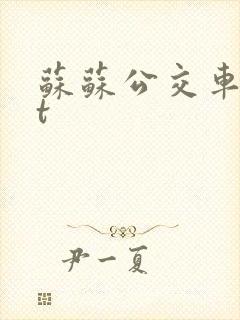 蘇蘇公交車
t
尹一夏